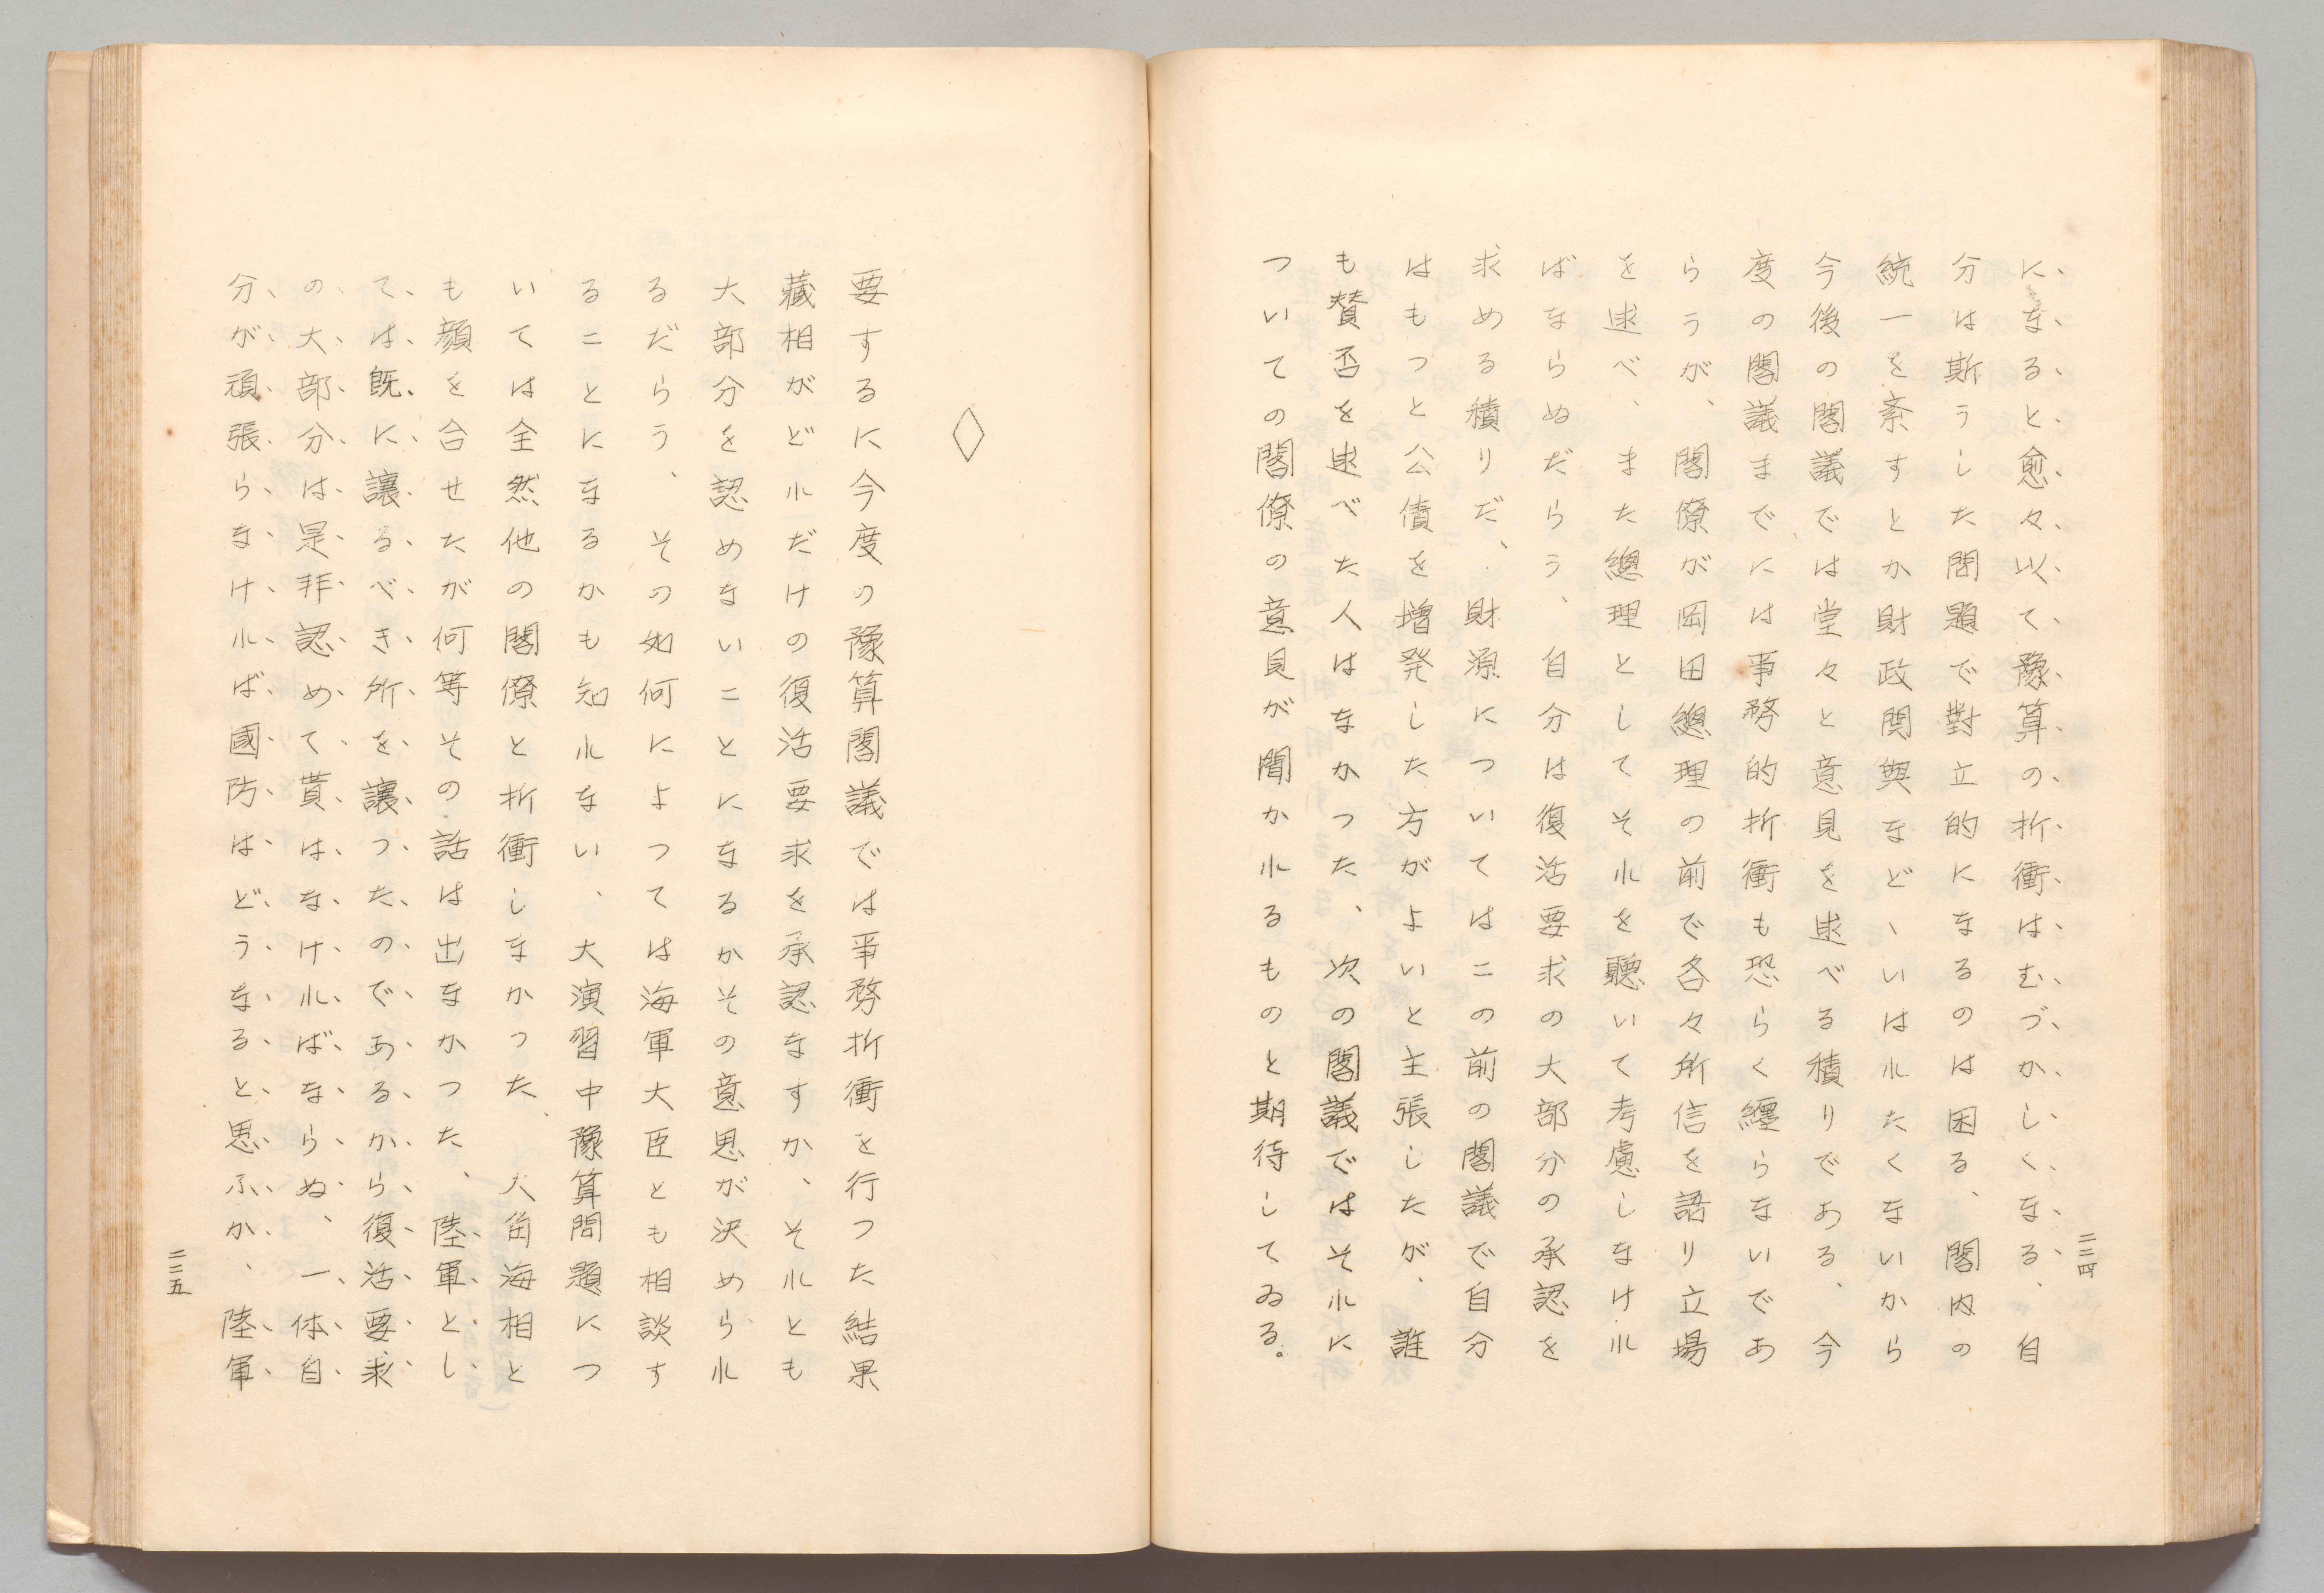 になると愈々以て豫算の折衝はむづかしくなる、自
分は斯うした問題で對立的になるのは困る、閣内の
統一を紊すとか財政関與などゝいはれたくないから
今後の閣議では堂々と意見を述べる積りである、今
度の閣議までには事務的折衝も恐らく纒らないであ
らうが、閣僚が岡田總理の前で各々所信を語り立場
を述べ、また總理としてそれを聽いて考慮しなけれ
ばならぬだらう、自分は復活要求の大部分の承認を
求める積りだ、財源についてはこの前の閣議で自分
はもつと公債を増発した方がよいと主張したが、誰
も賛否を述べた人はなかつた、次の閣議ではそれに
ついての閣僚の意見が聞かれるものと期待してゐる。
二二四
◇
要するに今度の豫算閣議では事務折衝を行つた結果
藏相がどれだけの復活要求を承認なすか、それとも
大部分を認めないことになるかその意思が決められ
るだらう、その如何によつては海軍大臣とも相談す
ることになるかも知れない、大演習中豫算問題につ
いては全然他の閣僚と折衝しなかつた、大角海相と
も顔を合せたが何等その話は出なかつた、陸軍とし
ては既に讓るべき所を讓つたのであるから復活要求
の大部分は是非認めて貰はなければならぬ、一体自
分が頑張らなければ國防はどうなると思ふか、陸軍
二二五